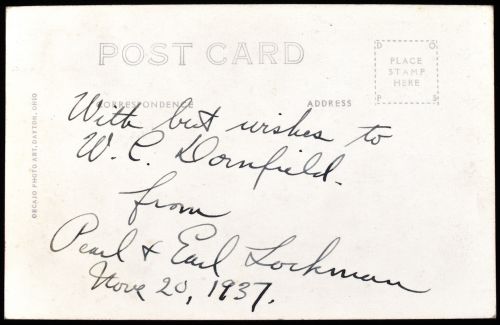 POST CARD
D O
PLACE
STAMP
HERE
P S
CORRESPONDENCE
ADDRESS
With best wishes to
W. C. Dornfield.
from
Pearl & Earl Lockman
Nov. 20, 1937.
ORCAJO PHOTO ART, DAYTON, OHIO